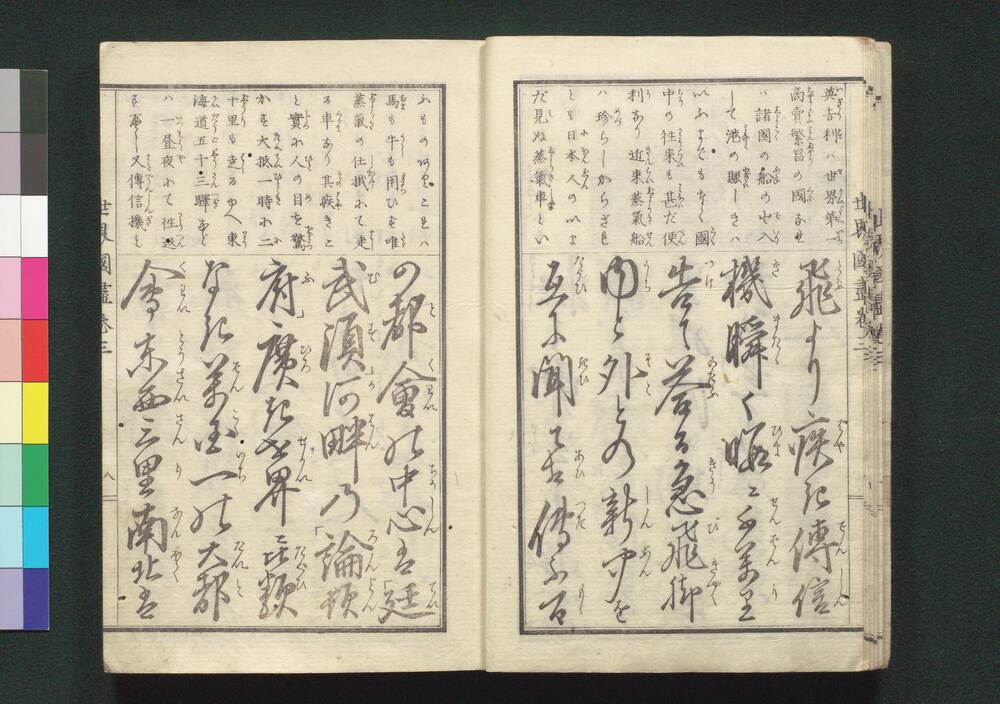 英吉利ハ世界第一
商賣繁昌の國なれ
バ諸國の船の出入
して港の賑しきハ
いふまでもなく國
中の往来も甚だ便
利あり近来蒸氣船
ハ珍らしからざれ
とも日本人のいま
だ見ぬ蒸氣車とい
飛より疾き傳信
機瞬く暇に千萬里
告て答る急飛脚
内と外との新聞を
互に聞て相傳ふ百
ふものあり。これハ
馬も牛も用ひを唯
蒸氣の仕掛にて走
る車あり其疾きこ
と實に人の目を驚
かす大抵一時に二
十里も走るゆへ東
海道五十三驛なと
ハ一晝夜にて往来
すべし又傳信機と
の都會の中心は「廷
武須」河畔乃「論頓
府」廣き世界に比類
なき萬國一の大都
會東西三里南北は
世界國盡巻三
八